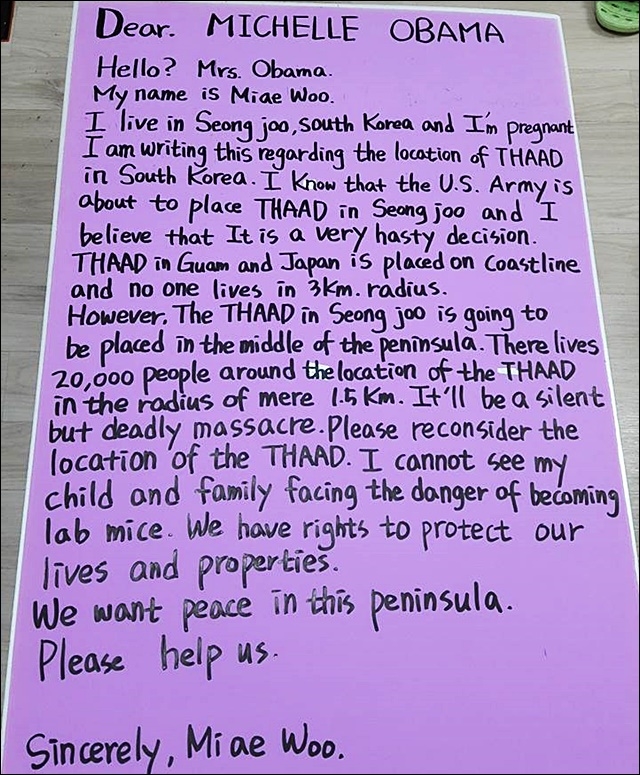 Dear. MICHELLE OBAMA
Hello? Mrs. Obama.
My name is Miae Woo.
I live in Seong joo, South Korea and I'm pregnant
I am writing this regarding the location of THAAD
in South Korea. I Know that the U.S. Army is
about to place THAAD in Seong joo and I
believe that It is a very hasty decision.
THAAD in Guam and Japan is placed on Coastline
and no one lives in 3Km. radius.
However, The THAAD in Seong joo is going to
be placed in the middle of the peninsula. There lives
20,000 people around the location of the THAAD
in the radius of mere 1.5 Km. It'll be a silent
but deadly massacre. Please reconsider the
location of the THAAD. I cannot see my
child and family facing the danger of becoming
lab mice. We have rights to protect our
lives and properties.
We want peace in this peninsula.
Please help us.
Sincerely, Miae Woo.